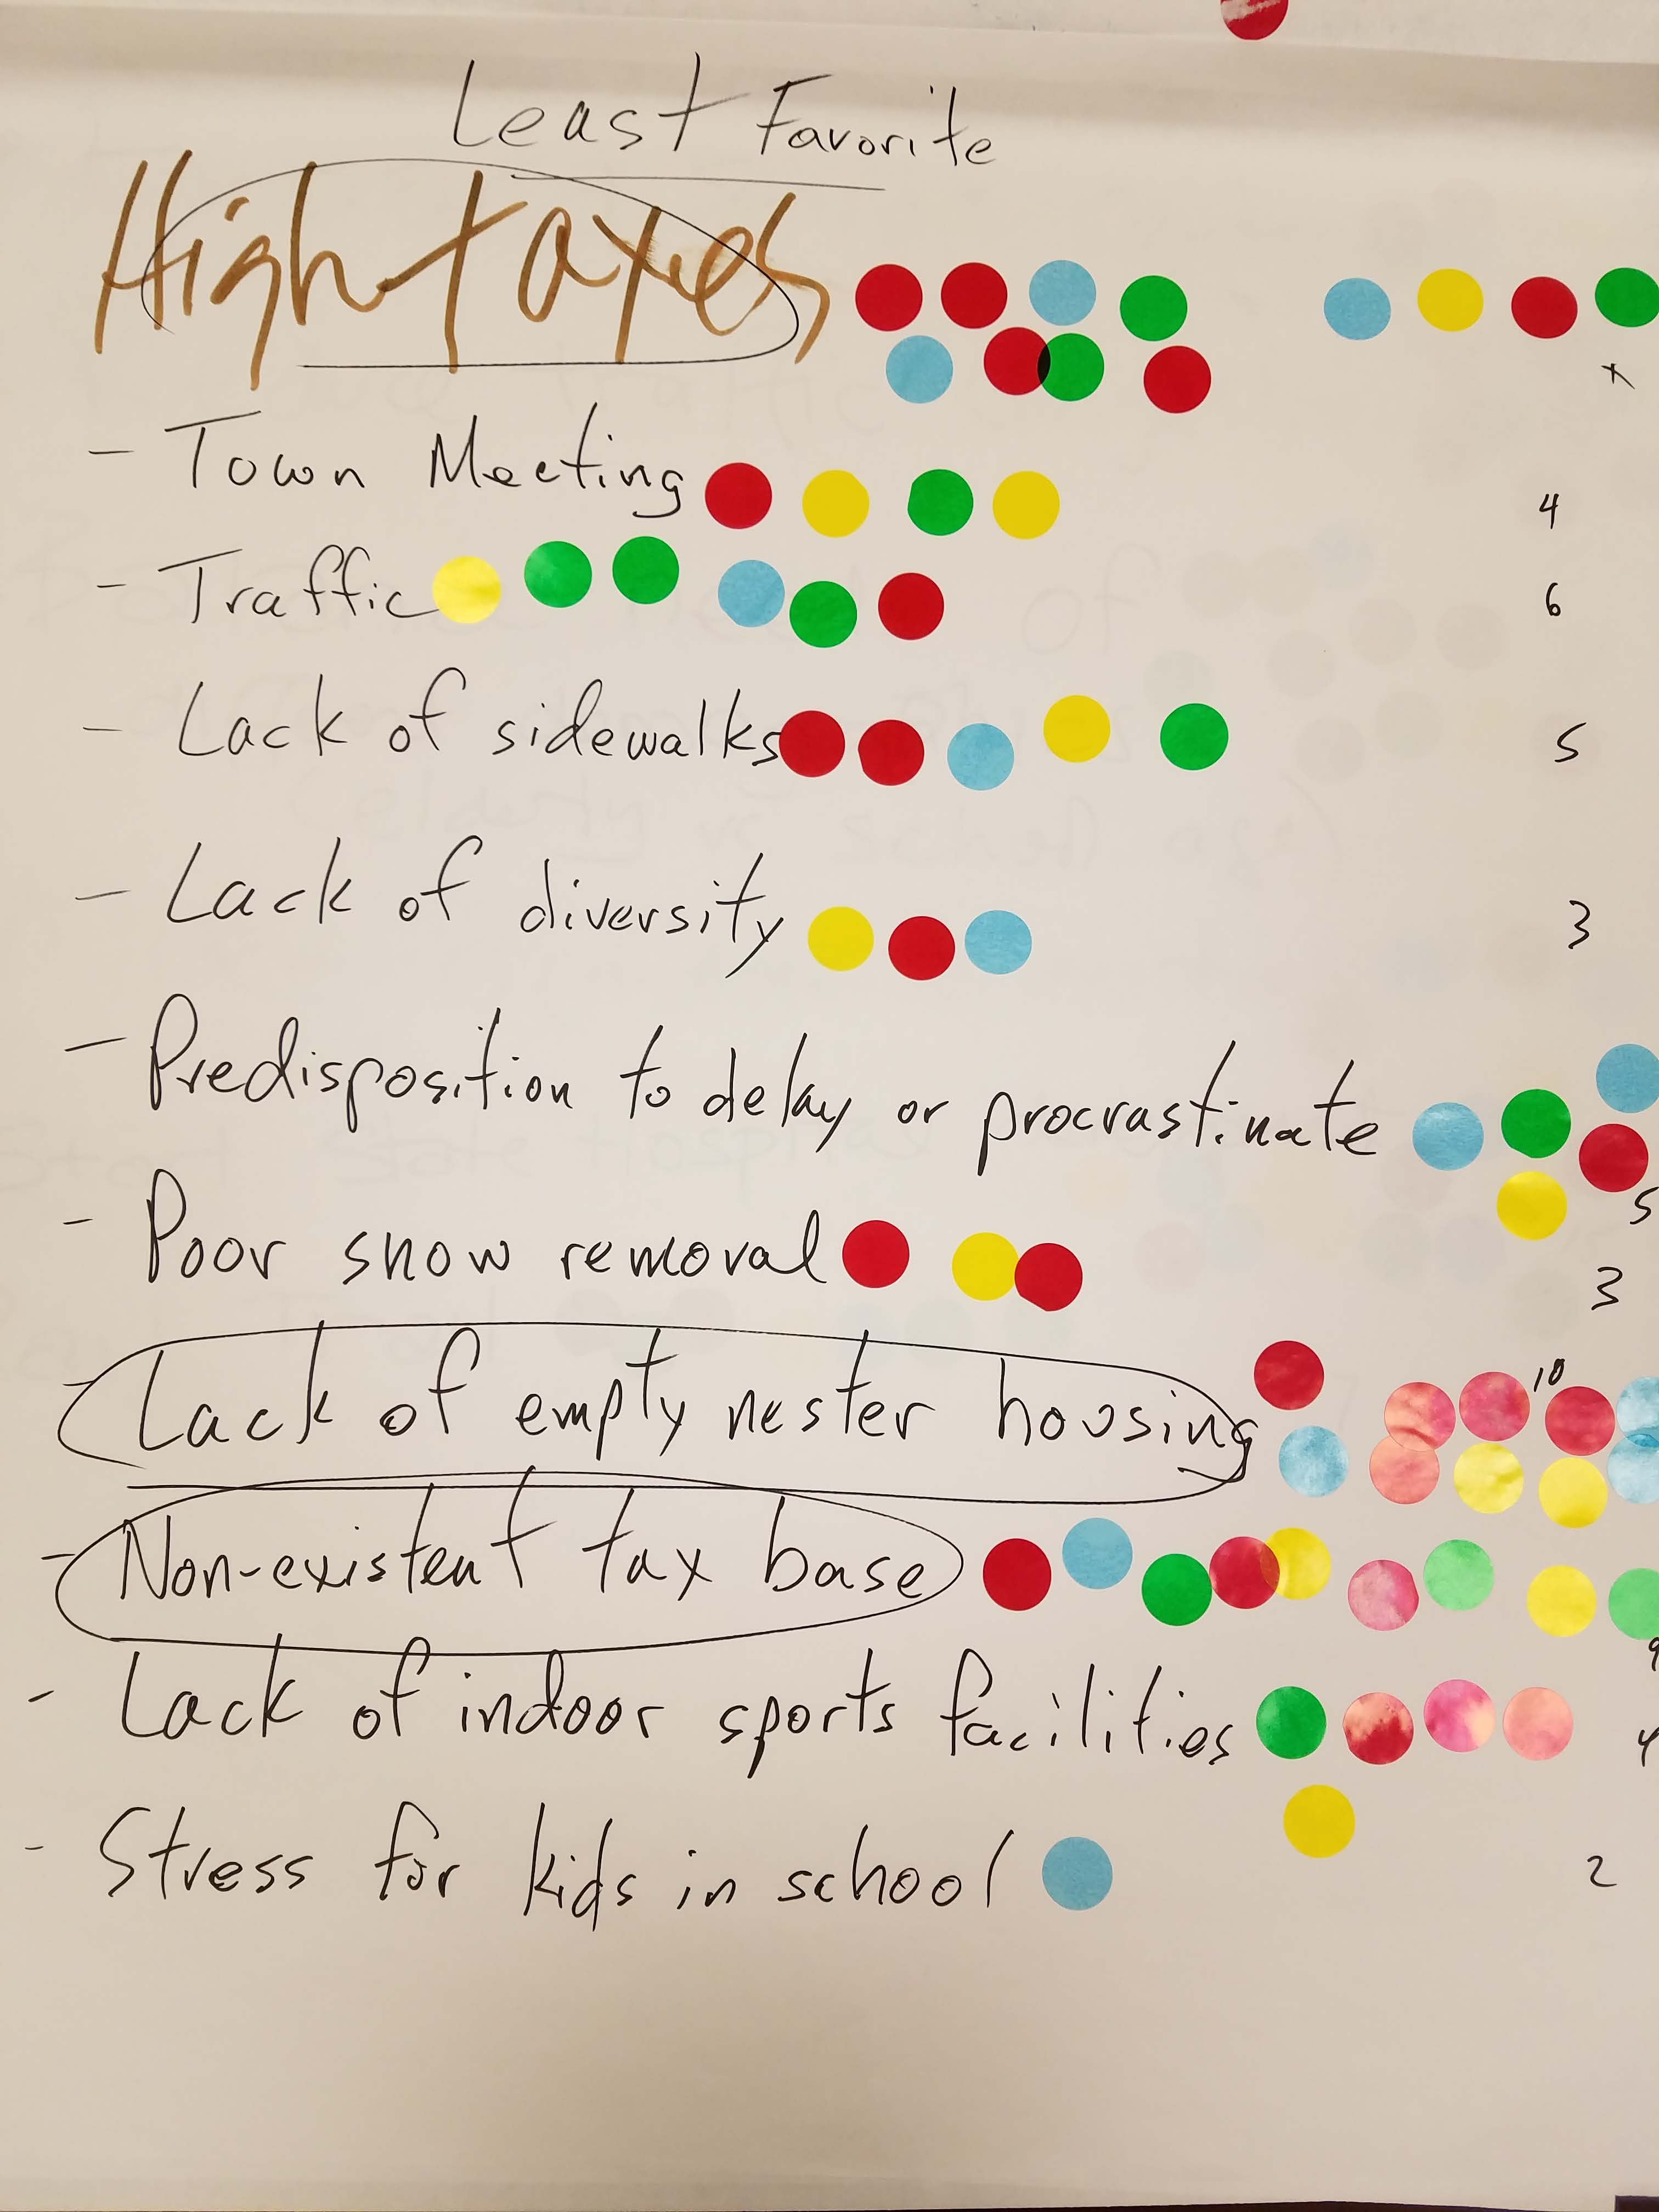 Least Favorite
High taxes
- Town Meeting 4
- Traffic 6
- Lack of sidewalks 5
- Lack of diversity 3
- Predisposition to delay or procrastinate 5
- Poor snow removal 3
- Lack of empty nester housing 10
- Non-existent tax base 9
- Lack of indoor sports facilities 4
- Stress for kids in school 2